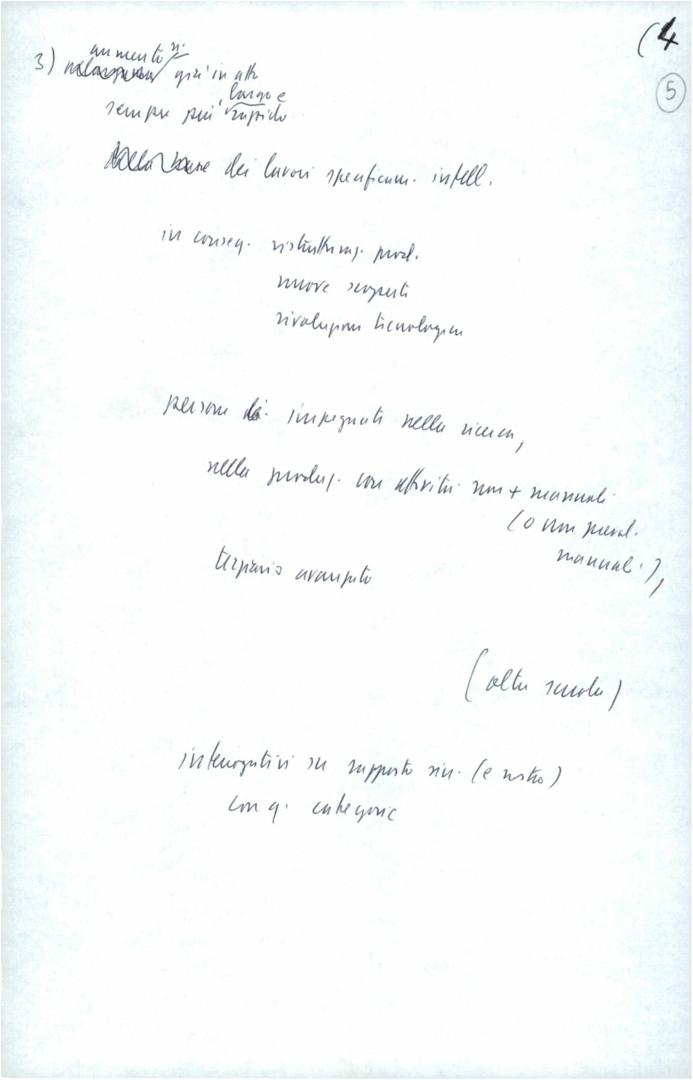 (4
5
aumento n.
3) già in atto
largo e
sempre più rapido
dei lavori specificam. intell.
in conseg. ristrutturaz. prod.
nuove scoperte
rivoluzione tecnologica
persone impegnate nella ricerca,
nella produz. con attività non + manuali
(o non preval.
manuali),
terziario avanzato
(oltre scuola)
interrogativi su rapporto sin. (e nostro)
con q. categorie